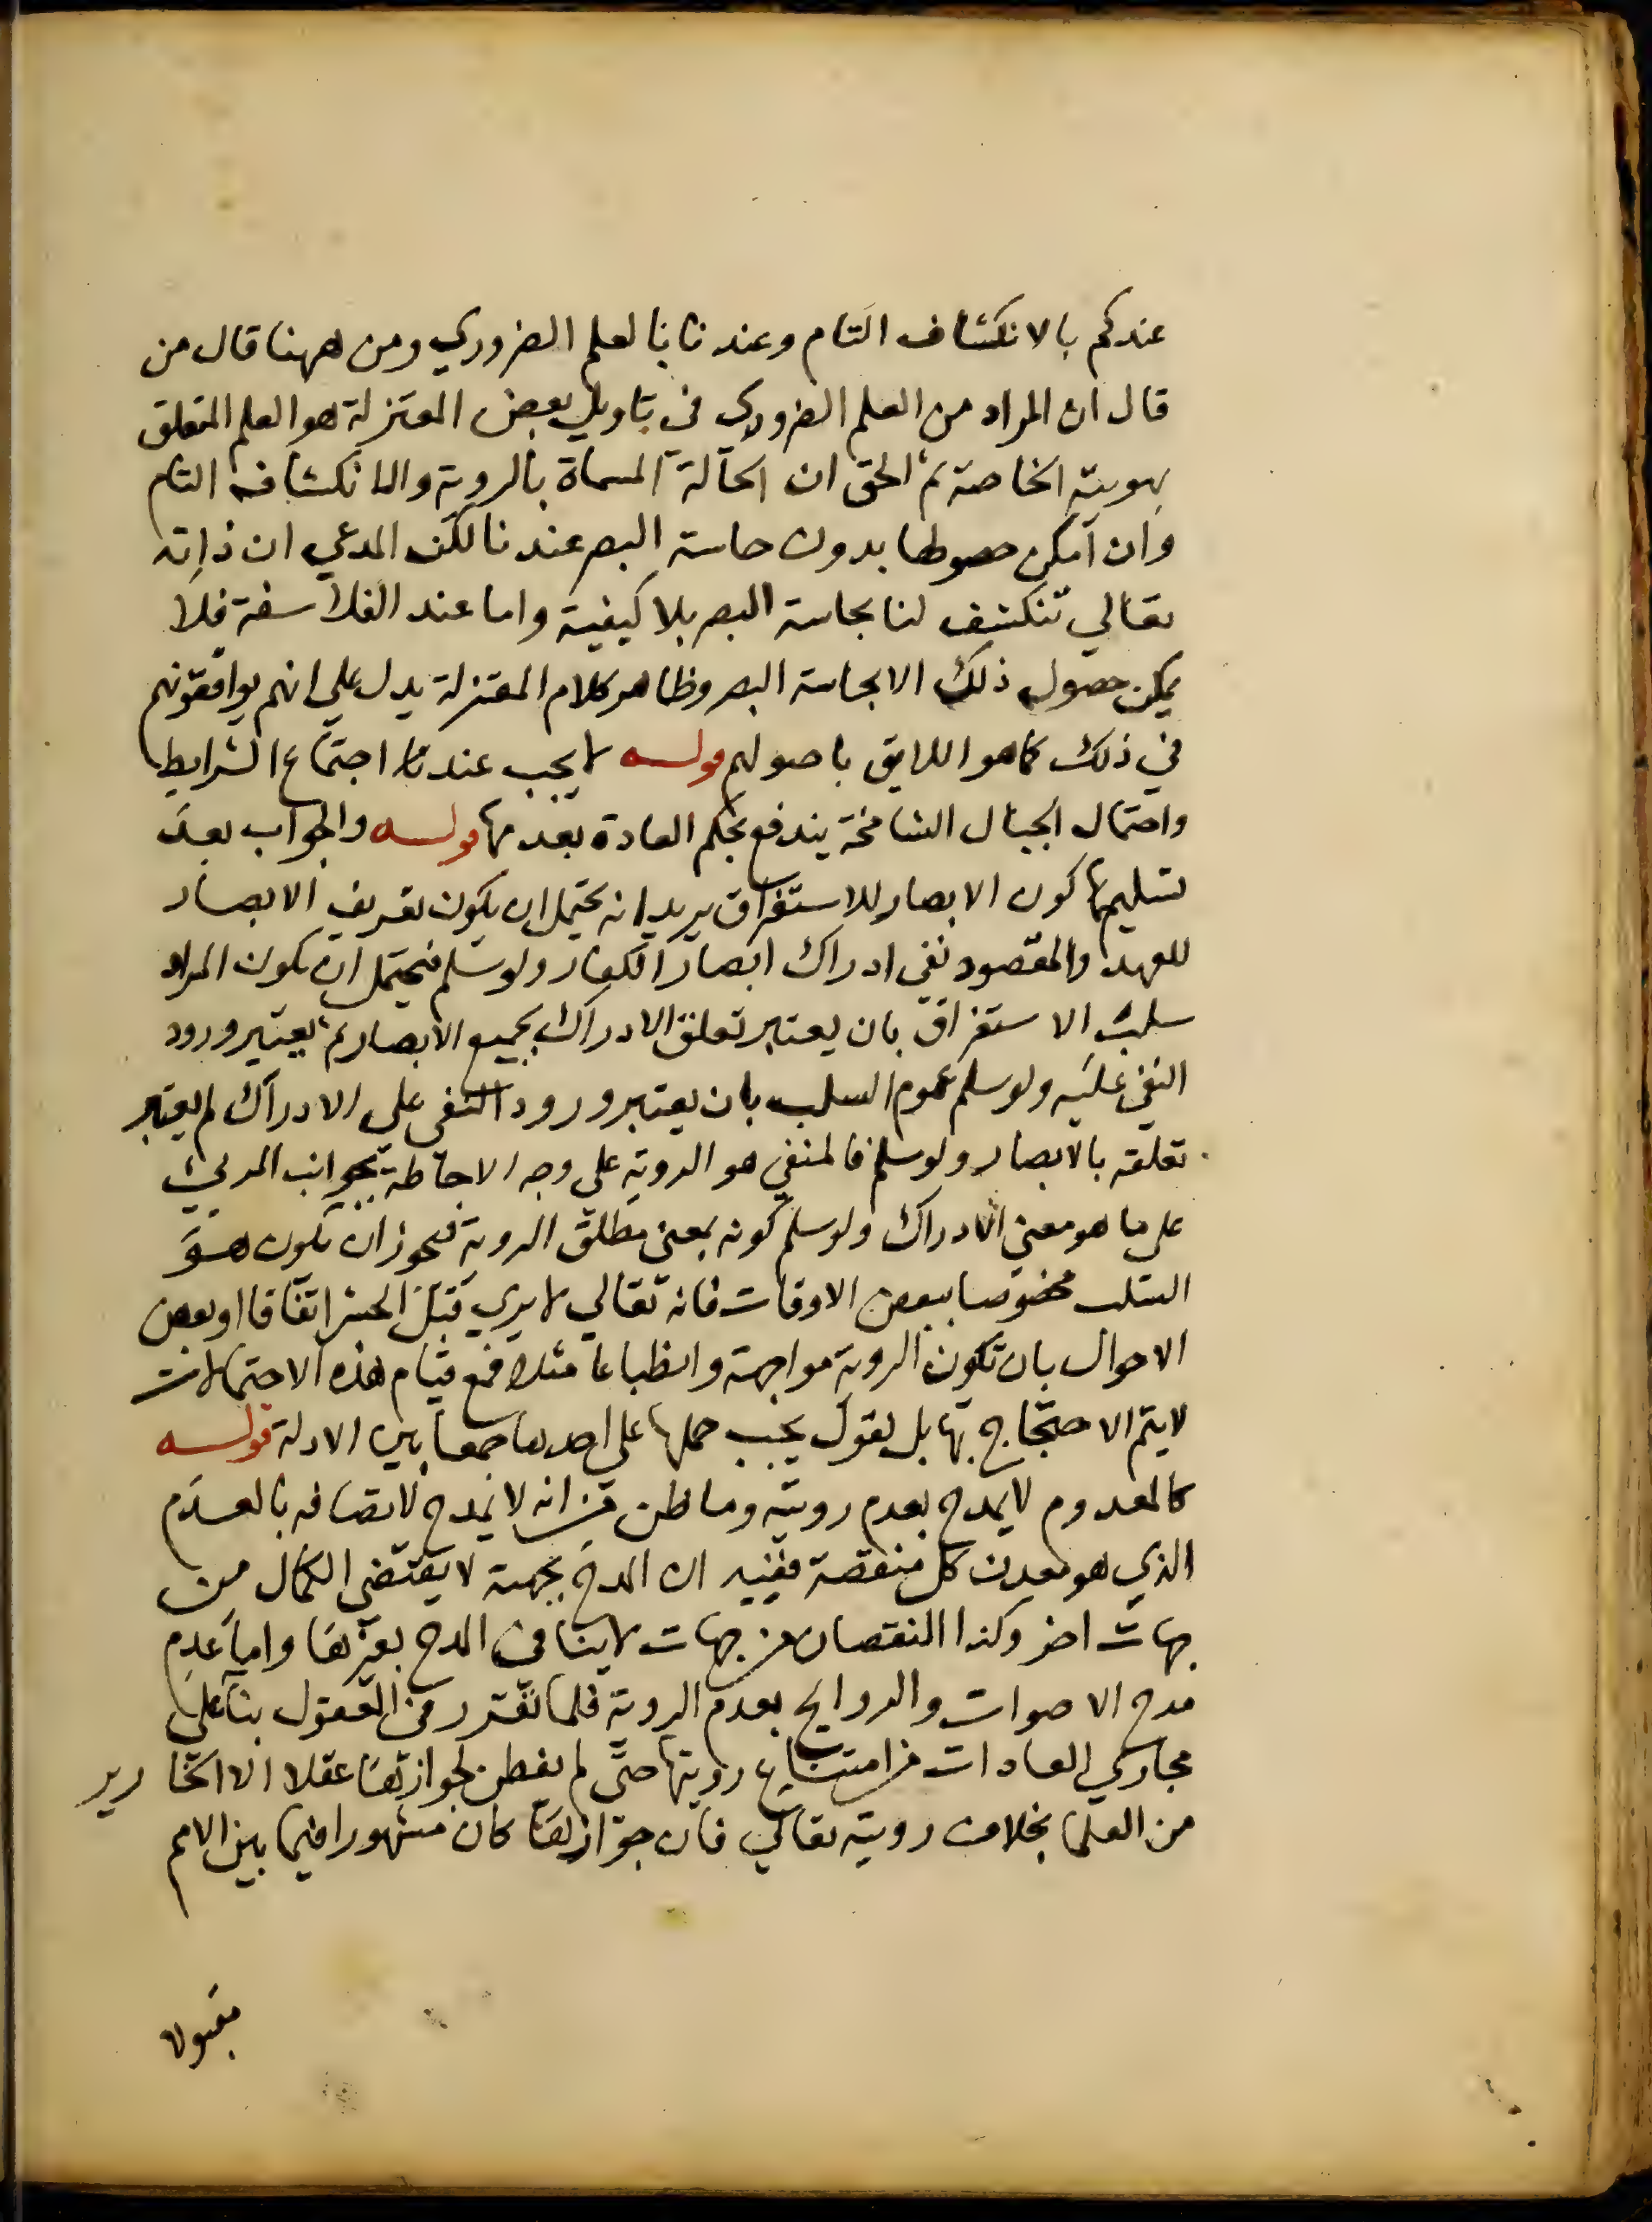 عندكم بالانكشاف التام وعندنا بالعلم الضروري ومن ههنا قال من
قال ان المراد من العلم الضروري في تاويل بعض المعتزلة هو العلم المتعلق
بهويته الخاصة ثم الحق ان الحالة المسماة بالروية والانكشاف التام
وان امكن حصولها بدون حاسة البصر عندنا لكن المدعي ان ذاته
تعالي تنكشف لنا بحاسة البصر بلا كيفية واما عند الفلاسفة فلا
يمكن حصول ذلك الا بحاسة البصر وظاهر كلام المعتزلة يدل علي انهم يوافقونهم
في ذلك كما هو اللايق باصولهم قولـــه لا يجب عندنا اجتماع الشرايط
واحتمال الجبال الشامخة يندفع بحكم العادة بعدمها قولـــه والجواب بعد
تسليم كون الابصار للاستغراق يريد انه يحتمل ان يكون تعريف الابصار
للعهد والمقصود نفي ادراك ابصار الكفار ولو سلم فيحتمل ان يكون المراد
سلب الاستغراق بان يعتبر تعلق الادراك بجميع الابصار ثم يعتبر ورود
النفي عليه ولو سلم عموم السلب بان يعتبر ورود النفي علي الادراك ثم يعتبر
تعلقه بالابصار ولو سلم فالمنفي هو الروية علي وجه الاحاطة بجوانب المرئي
علي ما هو معني الادراك ولو سلم كونه بمعني مطلق الروية فيجوز ان يكون هو
السلب مخصوصا ببعض الاوقات فانه تعالي لا يري قبل الحشر اتفاقا او بعض
الاحوال بان تكون الروية مواجهة وانطباعا مثلا فمع قيام هذه الاحتمالات
لا يتم الاحتجاج بها بل نقول يجب حملها علي احدها جمعا بين الادلة قولـــه
كالمعدوم لا يمدح بعدم رويته وما ظن من انه لا يمدح لاتصافه بالعدم
الذي هو معدن كل منقصة ففيه ان المدح بجهة لا يقتضي الكمال من
جهات اخر وكذا النقصان من جهات لا ينافي المدح بغيرها واما عدم
مدح الاصوات والروايح بعدم الروية فلما تقرر في العقول بنا علي
مجاري العادات من امتناع رويتها حتي لم يفطن لجوازها عقلا الا النحارير
من العلما بخلاف رويته تعالي فان جوازها كان مشهورا فيما بين الامم
مقبولا